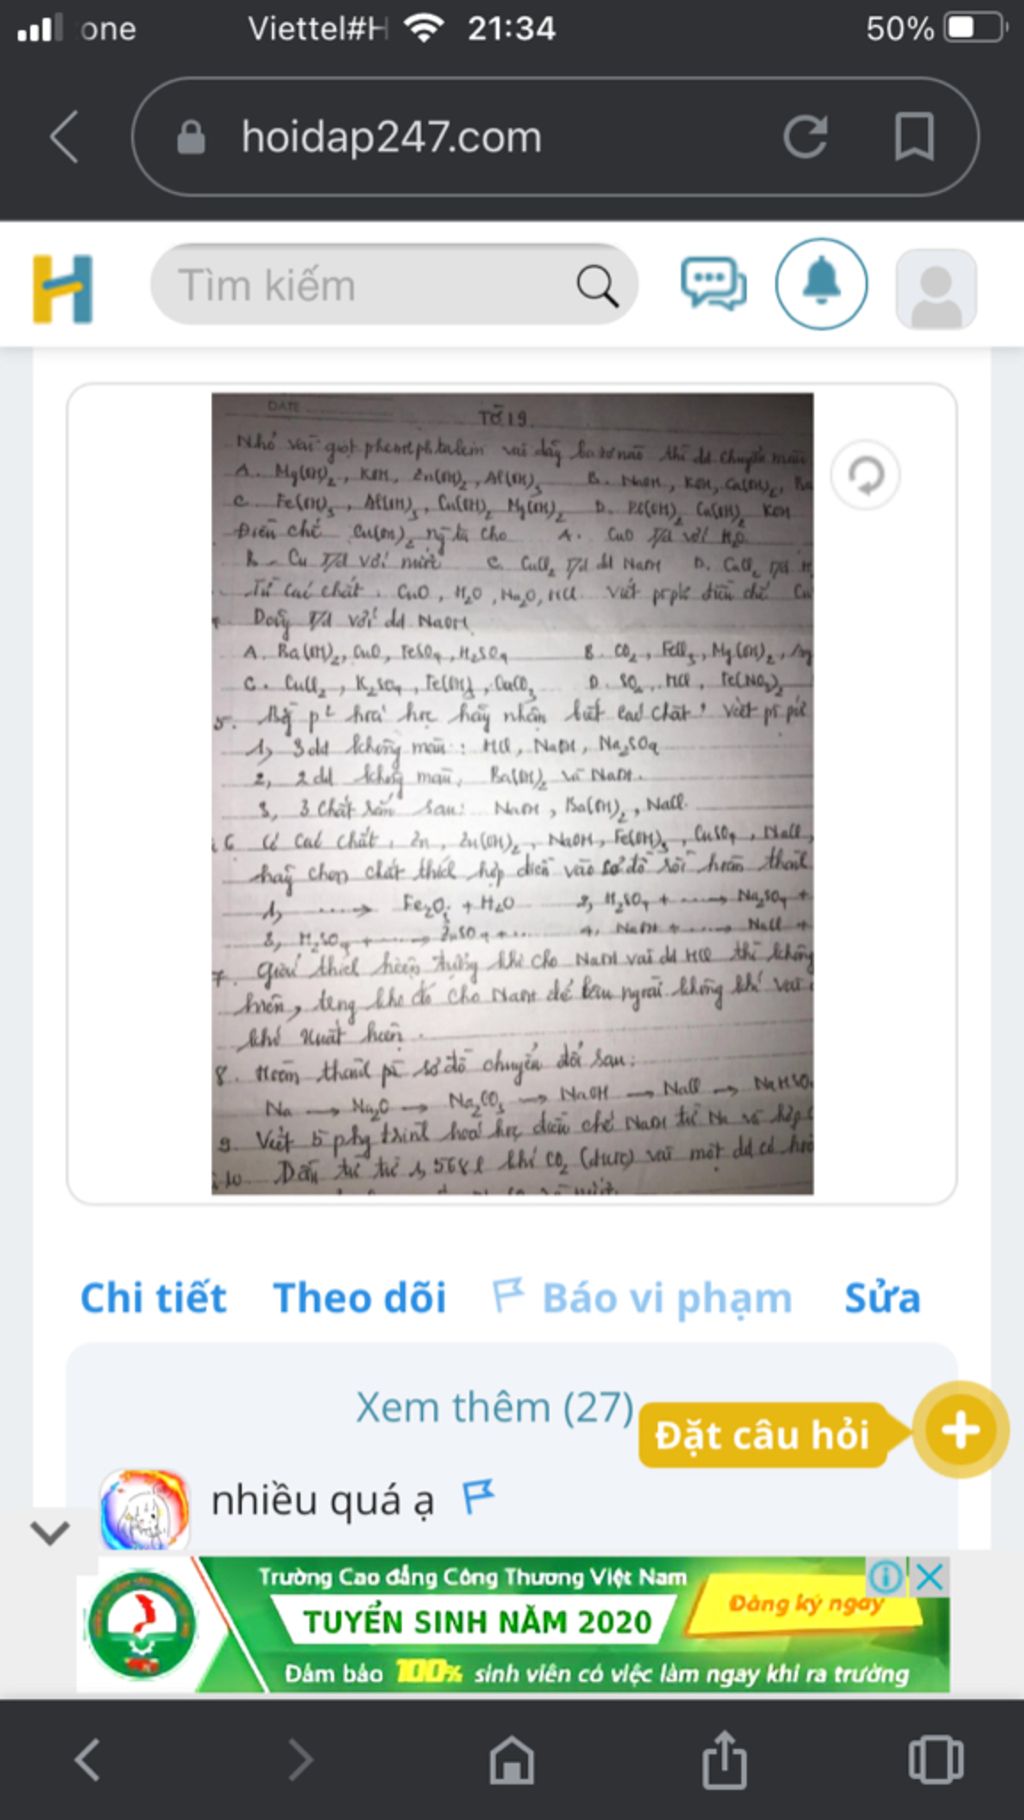 one Viettel#H 21:34 50%
hoidap247.com
Tìm kiếm
DATE
TỜ 19.
Nhỏ vài giọt phenolphtalein vào dãy bazơ nào thì dd chuyển màu
A. Mg(OH)₂, KOH, Zn(OH)₂, Al(OH)₃ B. NaOH, KOH, Ca(OH)₂, Ba
C. Fe(OH)₃, Al(OH)₃, Cu(OH)₂ Mg(OH)₂ D. Fe(OH)₂ Ca(OH)₂ KOH
Điều chế Cu(OH)₂ ng ta cho A. CuO t/d với H₂O
B. Cu t/d với nước C. CuCl₂ t/d dd NaOH D. CuCl₂ t/d H
Từ các chất: CuO, H₂O, Na₂O, HCl. viết ptpứ điều chế Cu
Dãy t/d với dd NaOH
A. Ba(OH)₂, CuO, FeSO₄, H₂SO₄ B. CO₂, FeCl₃, Mg(OH)₂,
C. CuCl₂, K₂SO₄, Fe(OH)₃, CaCO₃ D. SO₂, HCl, Fe(NO₃)₂
5. Bằng p² hoá học hãy nhận biết các chất, viết pt pứ
1, 3 dd không màu: HCl, NaOH, Na₂SO₄
2, 2 dd không màu, Ba(OH)₂ và NaOH.
3, 3 chất rắn sau: NaOH, Ba(OH)₂, NaCl.
6 Có các chất: Zn, Zn(OH)₂, NaOH, Fe(OH)₃, CuSO₄, NaCl,
hãy chọn chất thích hợp điền vào sơ đồ rồi hoàn thành
1, ........→ Fe₂O₃ + H₂O 2, H₂SO₄ + .....→ Na₂SO₄ +
3, H₂SO₄ + .......→ ZnSO₄ + ..... 4, NaOH + .....→ NaCl +
7. Giải thích hiện tượng khi cho NaOH vào dd HCl thì không
hiện, trong khi đó cho NaOH để lâu ngoài không khí vào
khí xuất hiện.
8. Hoàn thành pt sơ đồ chuyển đổi sau:
Na → Na₂O → Na₂CO₃ → NaOH → NaCl → NaHSO
9. Viết 5 phg trình hoá học điều chế NaOH từ Na và hợp c
10. Dẫn từ từ 1,568 l khí CO₂ (đktc) vào một dd có hoà
Chi tiết Theo dõi Báo vi phạm Sửa
Xem thêm (27)
Đặt câu hỏi
nhiều quá ạ
Trường Cao đẳng Công Thương Việt Nam
TUYỂN SINH NĂM 2020
Đăng ký ngay
Đảm bảo 100% sinh viên có việc làm ngay khi ra trường